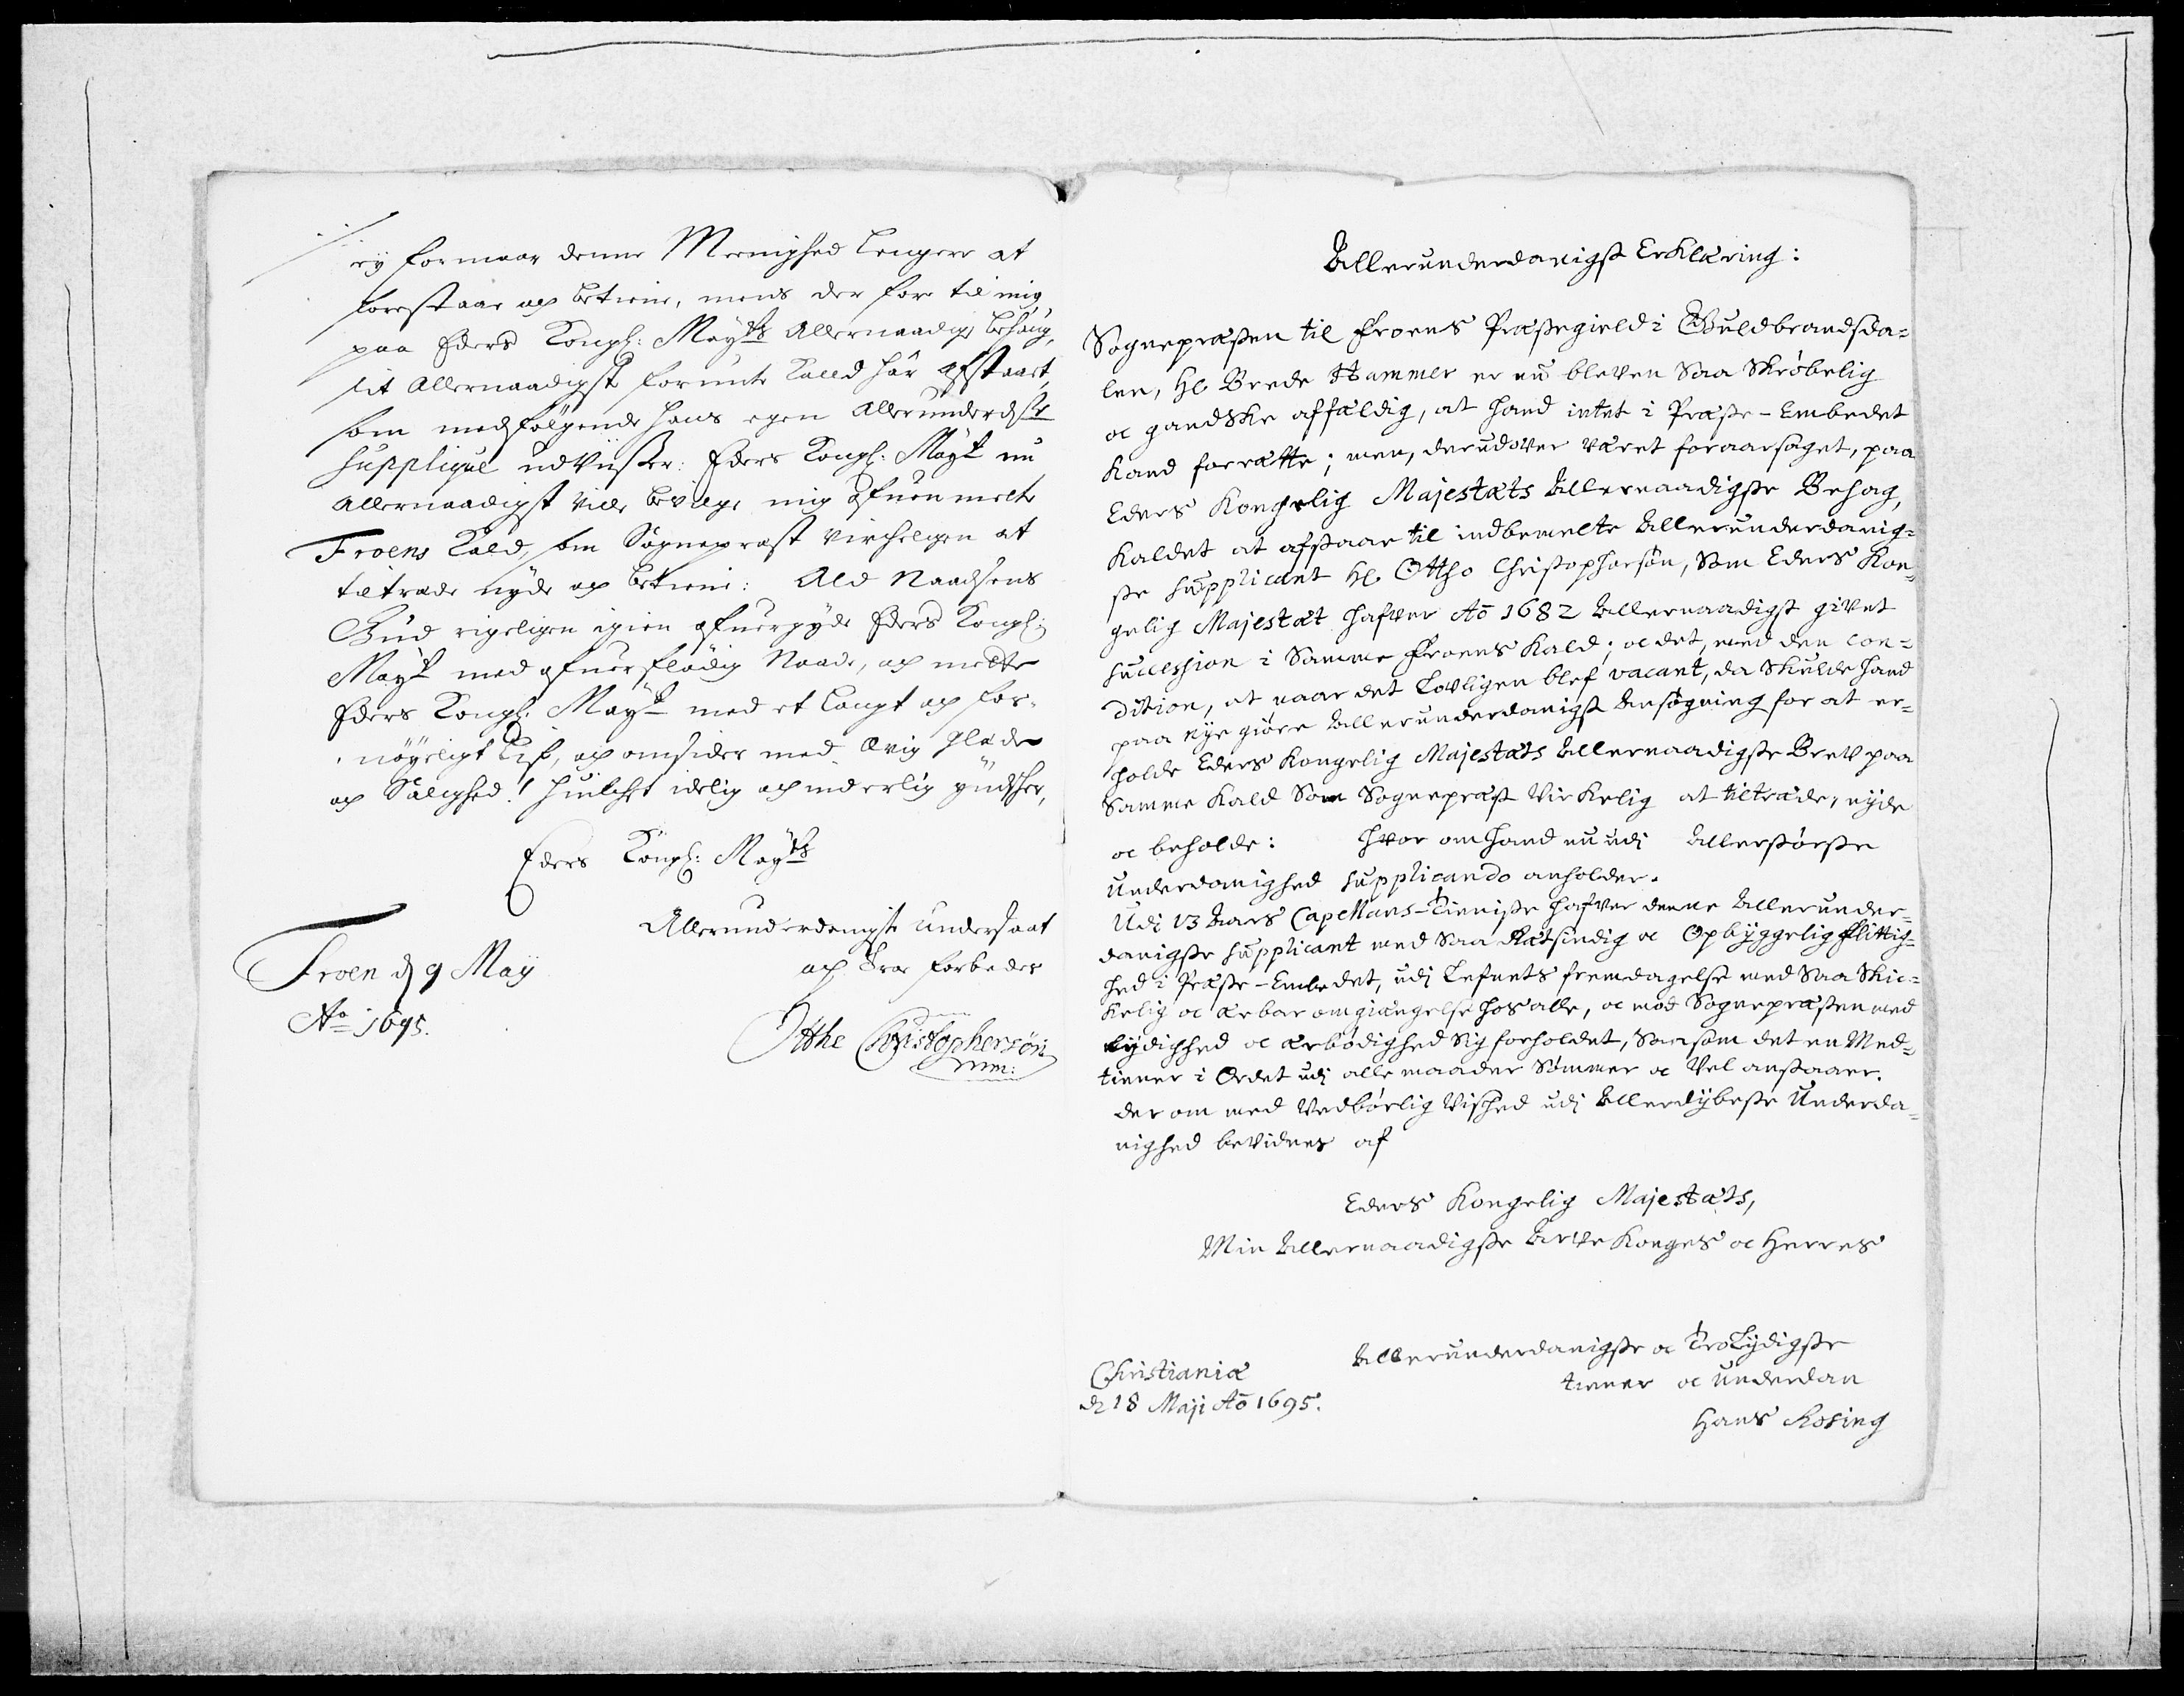 ey formaar denne Meenighed lengere at
forestaar og betiene, mens der fore til mig
paa Eders Kongl: Mayts Allernaadigste behaug,
sit Allernaadigste forunte Kald har afstaaet,
som medfølgende hans egen Allerunderdste
Supplique udviiser: Eders Kongl: Mayt nu
allernaadigst ville bevilge mig ofuenmelte
Froens Kald, som Sogneprest virkeligen at
tiltræde nyde og betiene: Ald Naadsens
Gud rigeligen igien ofuergyde Eders Kongl:
Mayt med ofuerflødig Naade, og mette
Eders Kongl. Mayt med et langt og for-
nøyeligt Lif, og omsider med Ævig glæde
og Salighed! Huilchet idelig og inderlig yndsker,
Eders Kongl: Mayts
Allerunderdanigste undersaat
og Troe forbeder
Otthe Christophersøn
mm:
Froen d 9 Maÿ
Ao 1695.
Allerunderdanigst Erklæring:
Sognepræsten til Froens Præstegield i Guldbrandsda=
len, Hl. Brede Hammer er nu bleven saa Skrøbelig
oc gandske affældig, at hand intet i Præste-Embedet
kand forrætte; men, derudover været foraarsaget, paa
Eders Kongelig Majestæts Allernaadigste Behag,
Kaldet at afstaae til indbemelte Allerunderdanig=
ste Supplicant Hl. Ottho Christophersøn, Som Eders Kon=
gelig Majestæt hafver Ao 1682 Allernaadigst givet
Succession i Samme Froens Kald; oc det, med den con=
dition, at naar det Lovligen blef vacant, da Skulde hand
paa nye giøre Allerunderdanigst Ansøgning for at er=
holde Eders Kongelig Majestæts Allernaadigste Brev paa
Samme Kald Som Sognepræst Virkelig at tiltræde, nyde
oc beholde: Hvor om hand nu udj Allerstørste
Underdanighed supplicando anholder.
Udj 13 Aars Capellans-Tieniste hafver denne Allerunder=
danigste Supplicant med Saa Rætsindig oc Opbyggelig flittig=
hed i Præste-Embedet, udj Lefnets fremdragelse med Saa Skic=
kelig oc ærbar omgiængelse hos alle, oc mod Sognepræsten med
lydighed oc ærbødighed Sig forholdet, Saasom det en Med=
tiener i Ordet udj alle maader Sømmer oc Vel anstaaer.
der om med Vedbørlig Vished udj Allerdybeste Underda=
nighed bevidnes af
Eders Kongelig Majestæts,
Min Allernaadigste Arve Konges oc Herres
Allerunderdanigste oc Troelydigste
tiener oc underdan
Hans Rosing
Christianiæ
d. 18 Maji Ao 1695.